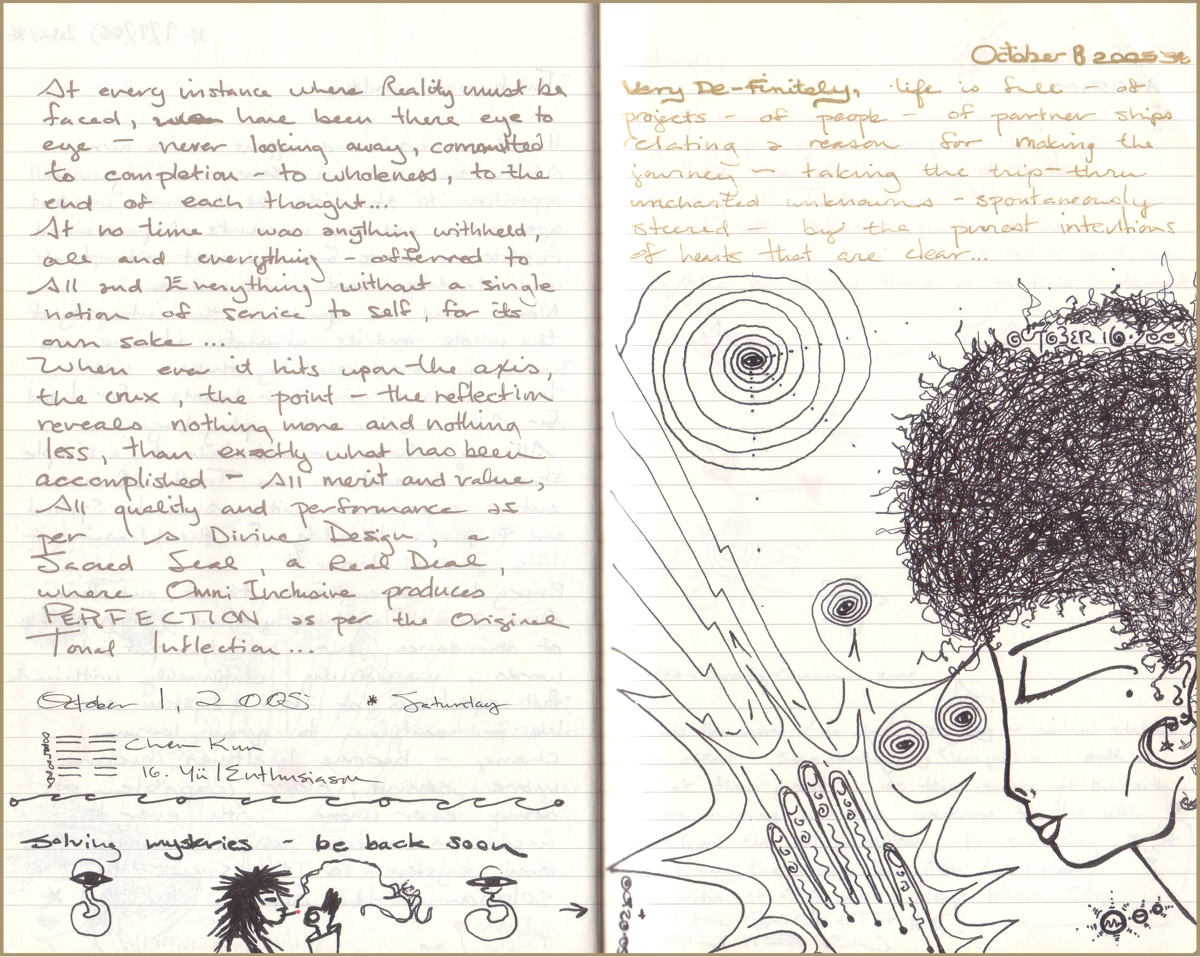 At every instance where Reality must be
faced, have been there eye to
eye - never looking away, committed
to completion - to wholeness, to the
end of each thought...
At no time was anything withheld,
all and everything - offerred to
All and Everything without a single
notion of service to self, for its
own sake ...
When ever it hits upon the axis,
the crux, the point - the reflection
reveals nothing more and nothing
less, than exactly what has been
accomplished - All merit and value,
All quality and performance as
per Divine Design, a
Sacred Seal, a Real Deal,
where Omni Inclusive produces
PERFECTION as per the Original
Tonal Inflection...
October 1, 2005 * Saturday
Chen Kun
16. Yü / Enthusiasm
Solving mysteries - be back soon
October 8 2005
Very De-finitely, life is full - of
projects - of people - of partner ships
relating a reason for making the
journey - taking the trip - thru
uncharted unknowns - spontaneously
steered - by the purest intentions
of hearts that are clear...
OCTOBER 16 ·